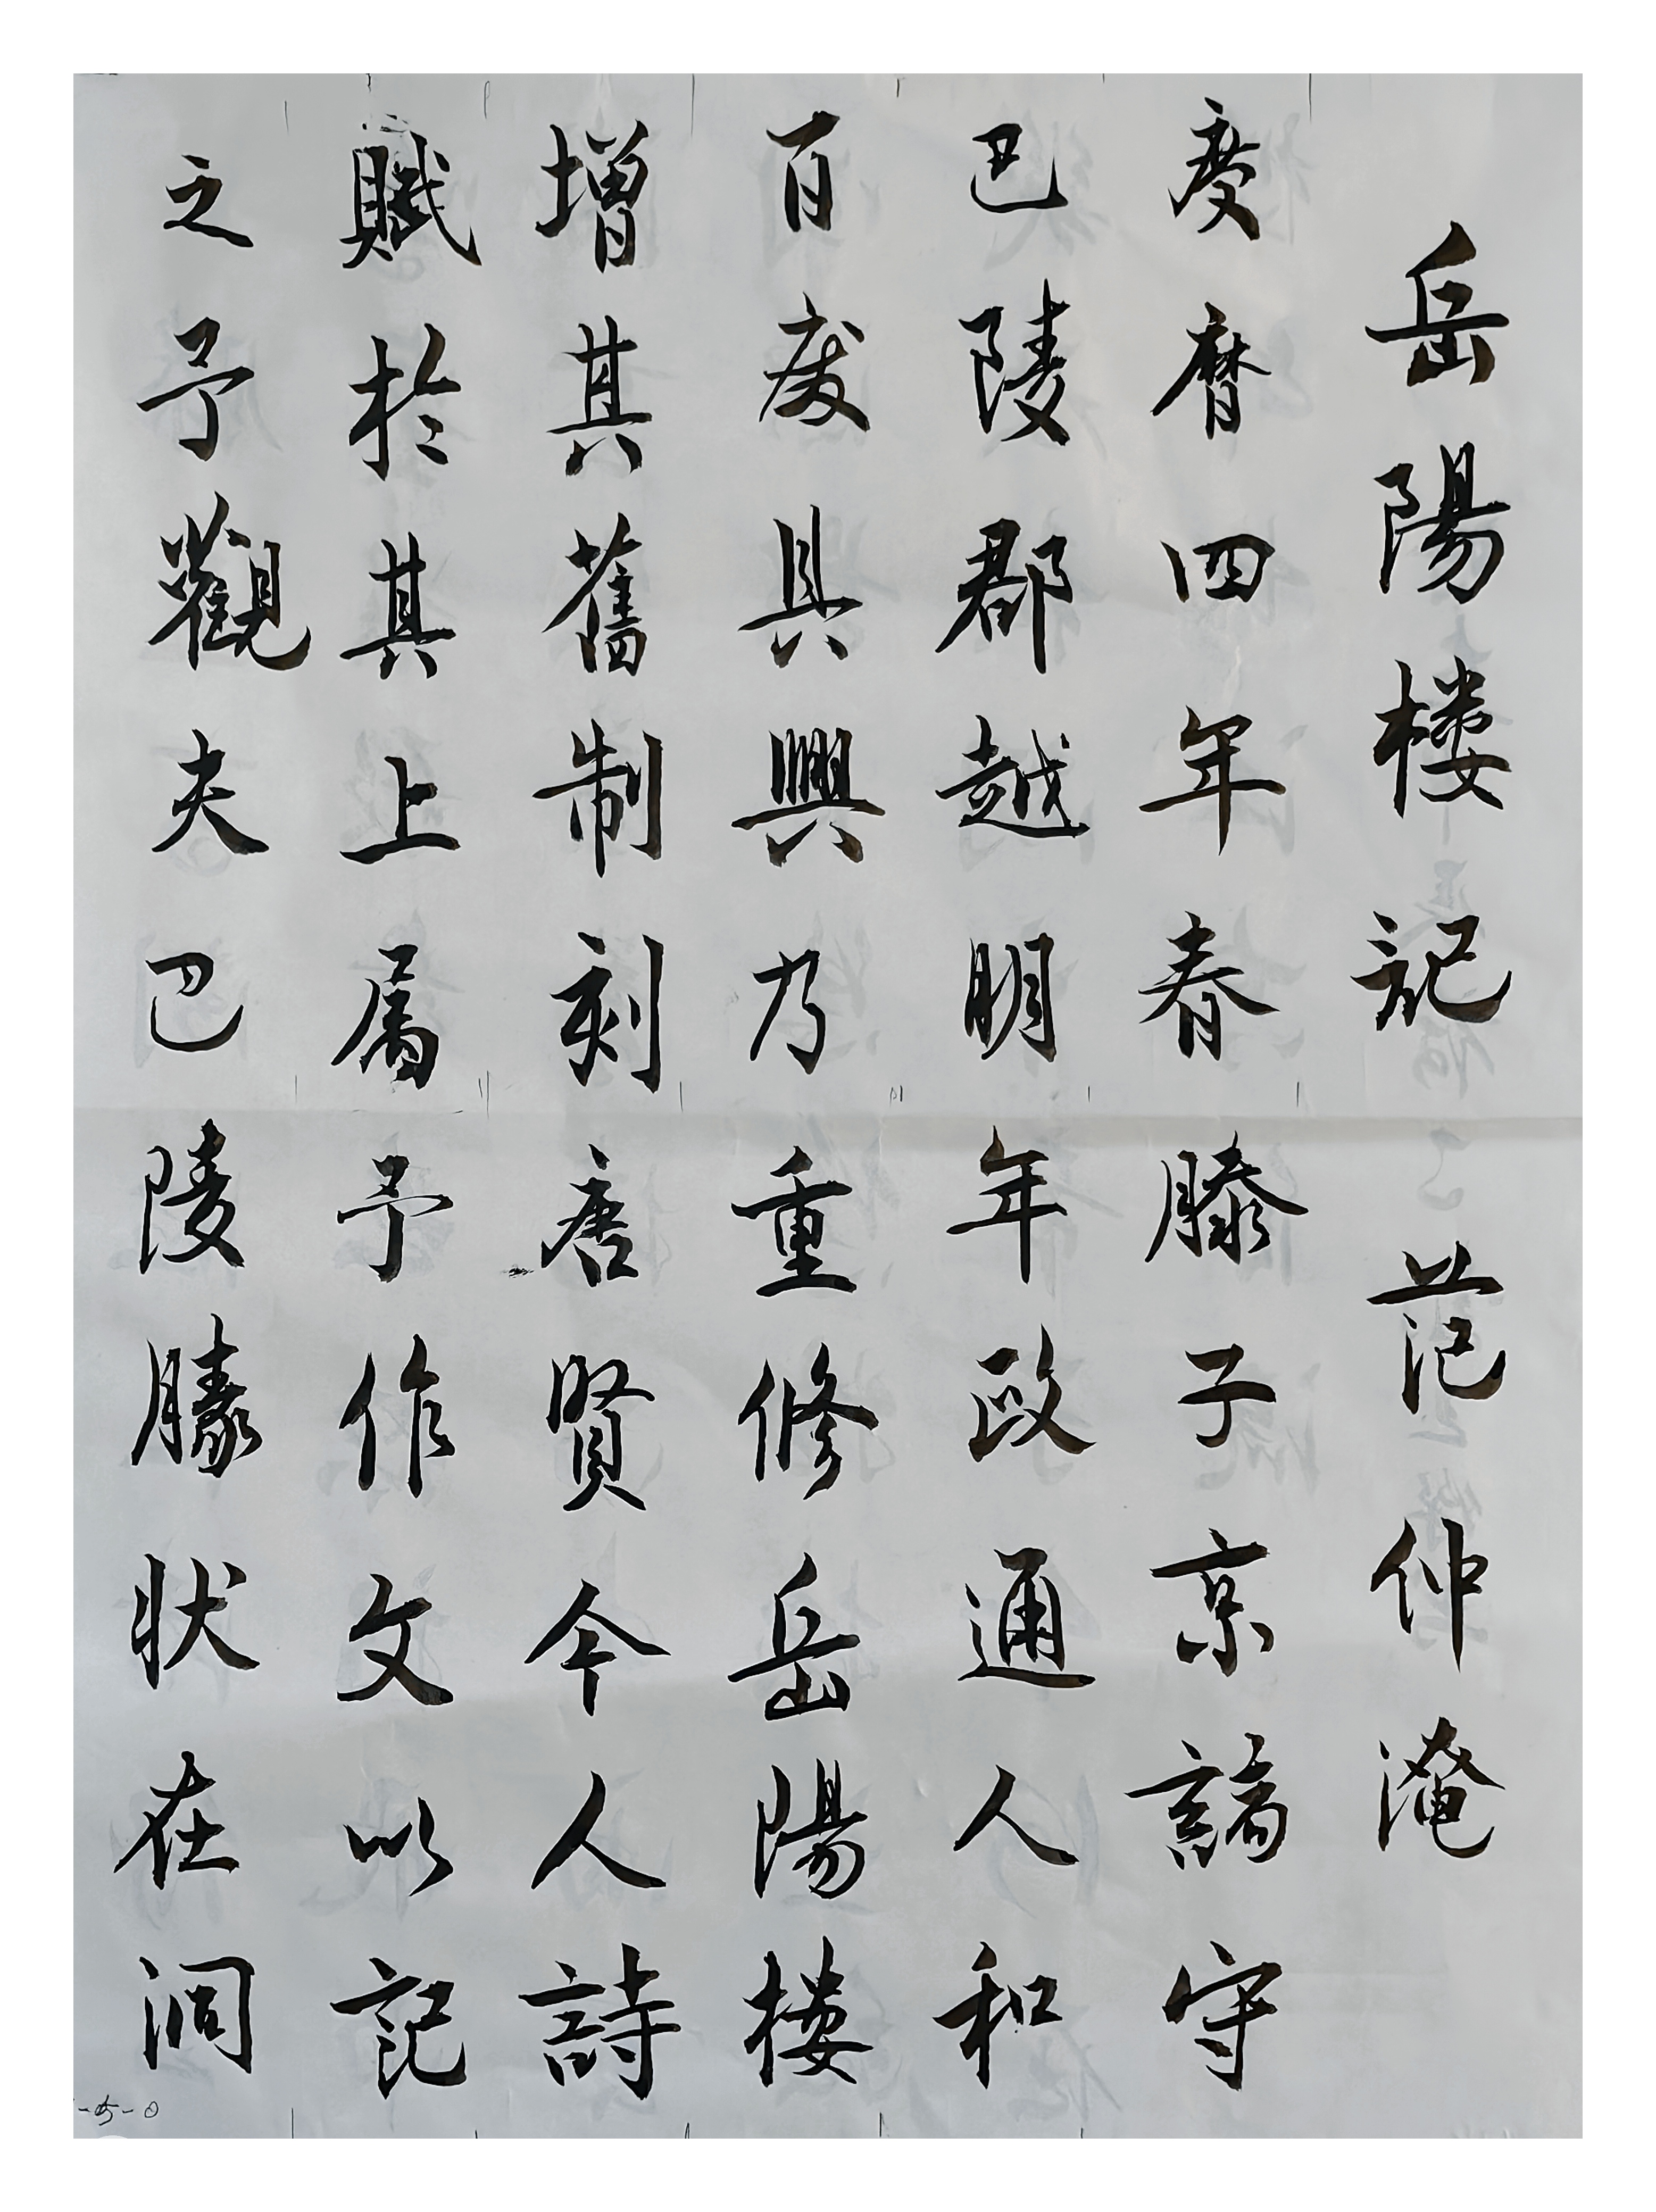 岳陽楼記 范仲淹
慶曆四年春滕子京謫守
巴陵郡越明年政通人和
百廢具興乃重修岳陽楼
增其舊制刻唐賢今人詩
賦於其上属予作文以記
之予觀夫巴陵勝状在洞